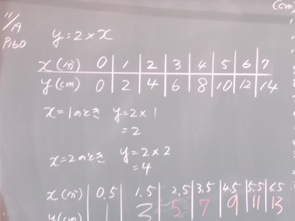 11/A
P160
(cm)
y=2×x
x(m) 0 1 2 3 4 5 6 7
y(cm) 0 2 4 6 8 10 12 14
x=1のとき y=2×1
=2
x=2のとき y=2×2
=4
x(m) 0.5 1.5 2.5 3.5 4.5 5.5 6.5
y(cm) 1 3 5 7 9 11 13